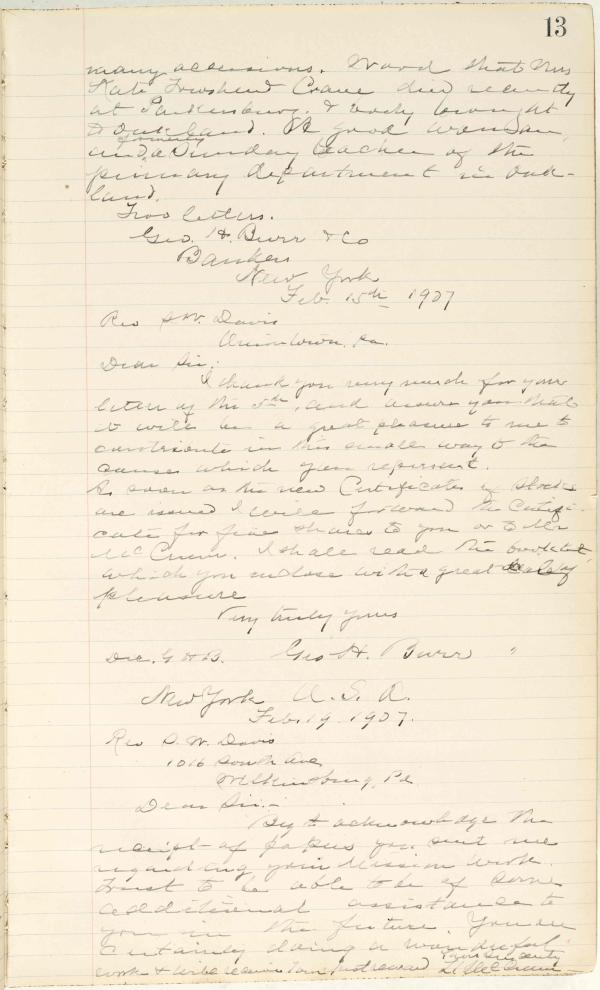 13
many accessions. Word that Mrs
Kate Townshend Crane died recently
at Parkersburg. & body brought
to Oakland. A good woman,
formerly
and a Sunday teacher of the
primary department in Oak-
land.
Two letters.
Geo. H. Burr & Co
Bankers
New York
Feb. 15th 1907
Rev S. W. Davis
Uniontown, Pa.
Dear Sir;
I thank you very much for your
letter of the 5th, and assure you that
it will be a great pleasure to me to
contribute in this small way to the
cause which you represent.
As soon as the new Certificates of Stock
are issued I will forward the Certifi-
cate for five shares to you or to Mr
McCrum. I shall read the booklet
which you inclose with a great deal of
pleasure
Very truly yours
Dic. G H B. Geo H. Burr "
New York U. S. A.
Feb. 19 1907.
Rev S. W. Davis
1016 South Ave
Wilkinsburg, Pa
Dear Sir:-
Beg to acknowledge the
receipt of papers you sent me
regarding your Mission work.
Trust to be able to be of some
additional assistance to
you in the future. You are
certainly doing a wonderful
work & will receive your just reward Yours sincerely
McCrum